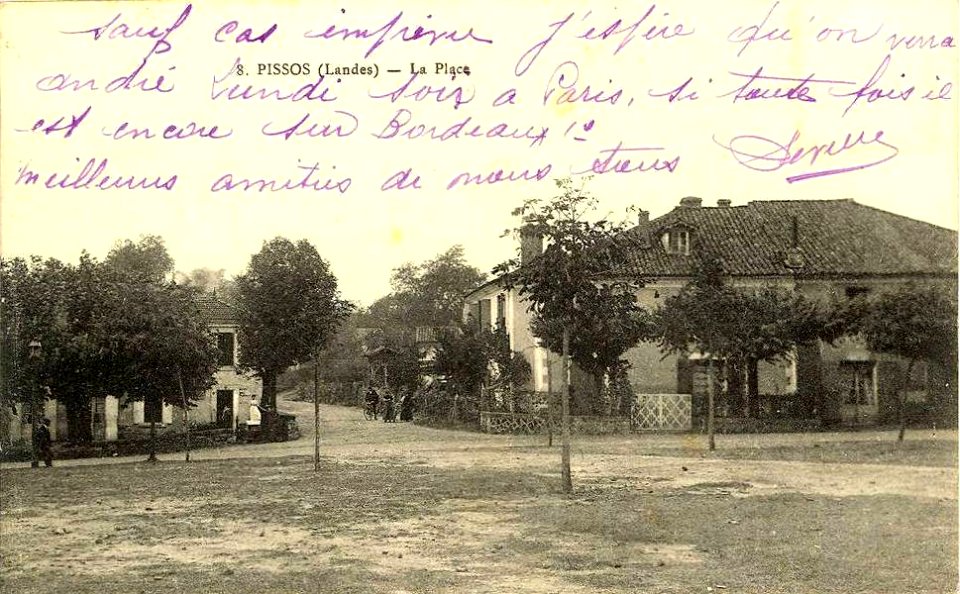 sauf cas imprévue J'espère qu'on verra
8. PISSOS (Landes) — La Place
andré Lundi soir a Paris, si toute fois il
est encore sur Bordeaux
Meilleures amitiés de nous tous